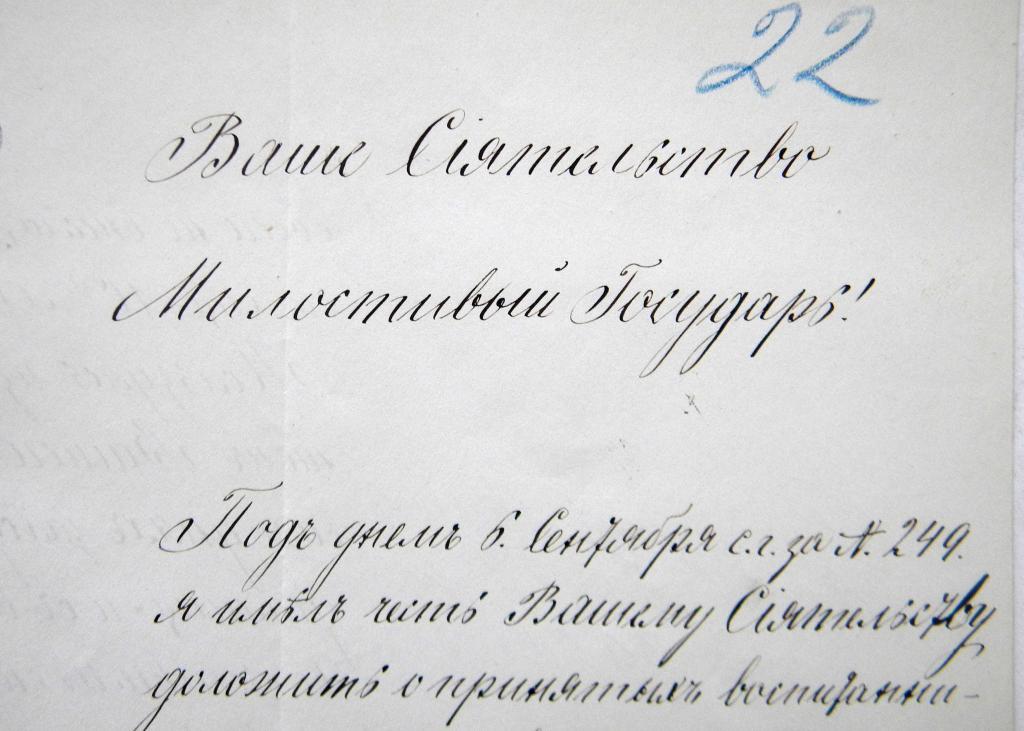 22
Ваше Сіятельство
Милостивый Государь!
Подъ днемъ 6. Сентября с.г. за N. 249.
я имѣлъ честь Вашему Сіятельству
доложить о принятыхъ воспитанни-